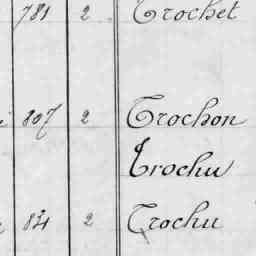 781 2 Trochet
807 2 Trochon
Trochu
2 Trochu